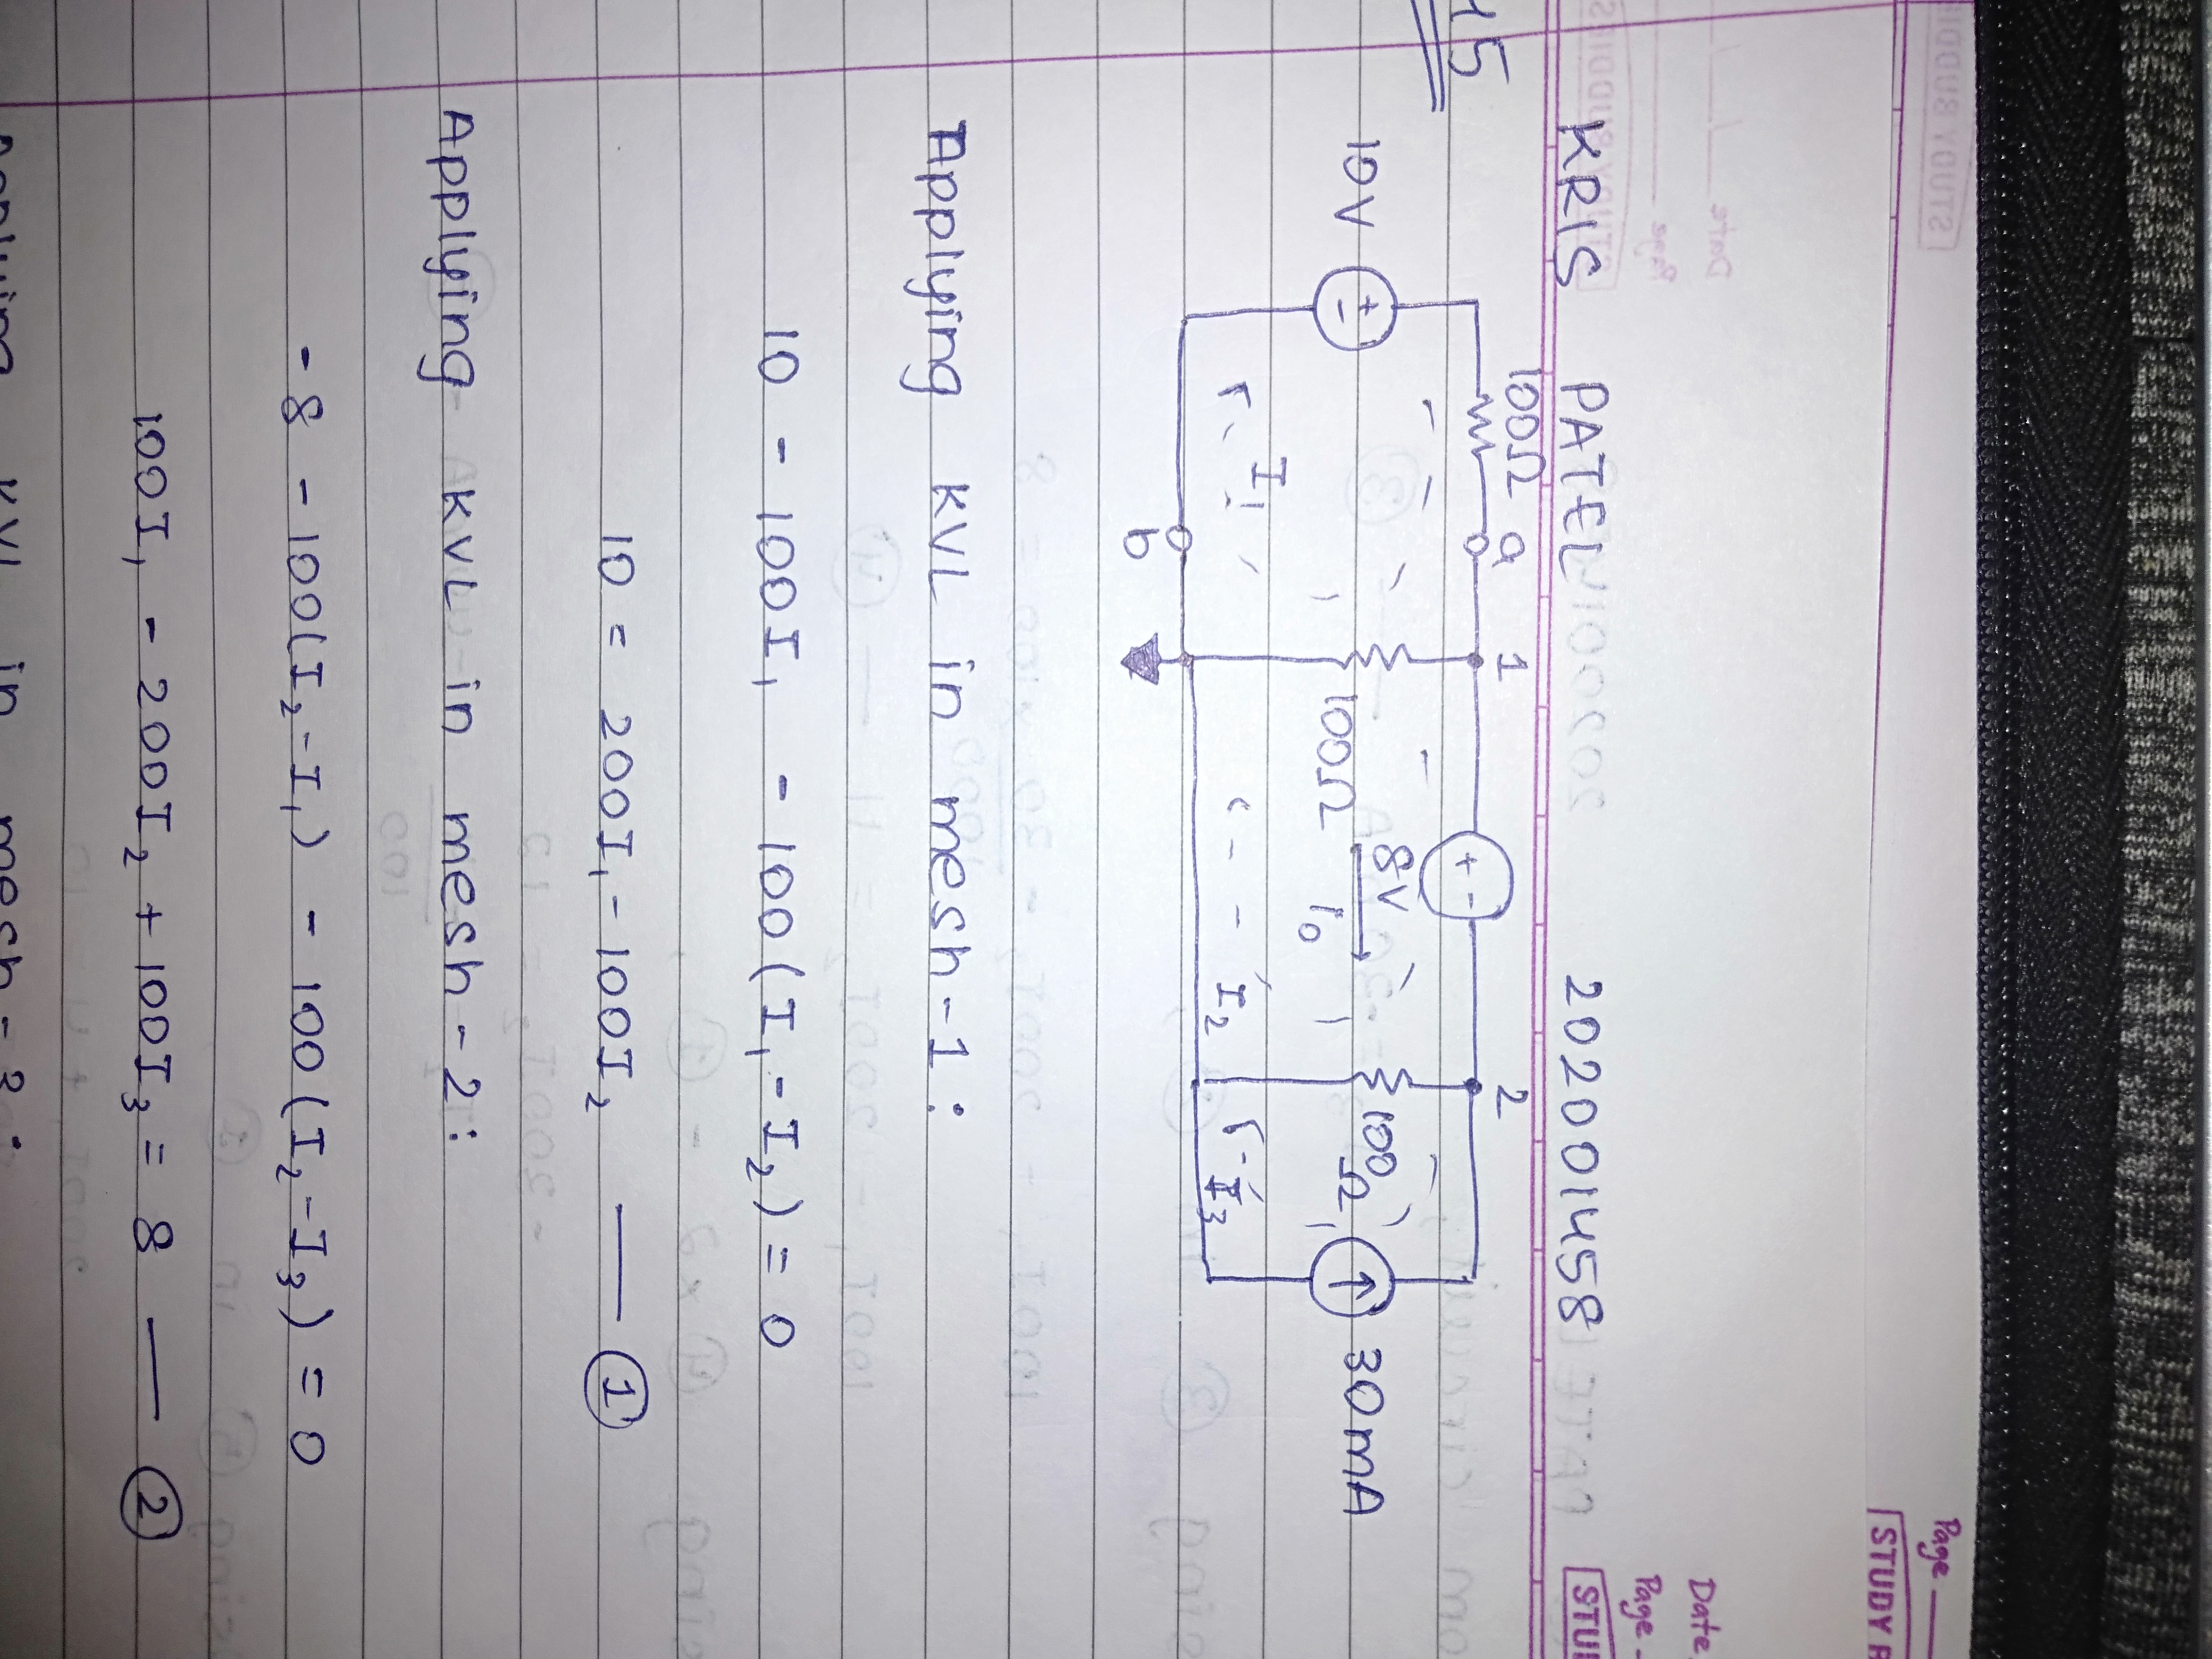 Page
STUDY
Date
Page
STU
KRIS PATEL 202001458
15
100Ω a 1 2
+ -
8V
10V + - 100Ω I0 100Ω 30mA
I1 I2 I3
b
Applying KVL in mesh-1:
10 - 100I1 - 100(I1-I2) = 0
10 = 200I1 - 100I2 — ①
Applying KVL in mesh-2:
-8 - 100(I2-I1) - 100(I2-I3) = 0
100I1 - 200I2 + 100I3 = 8 — ②
Applying KVL in mesh-3: